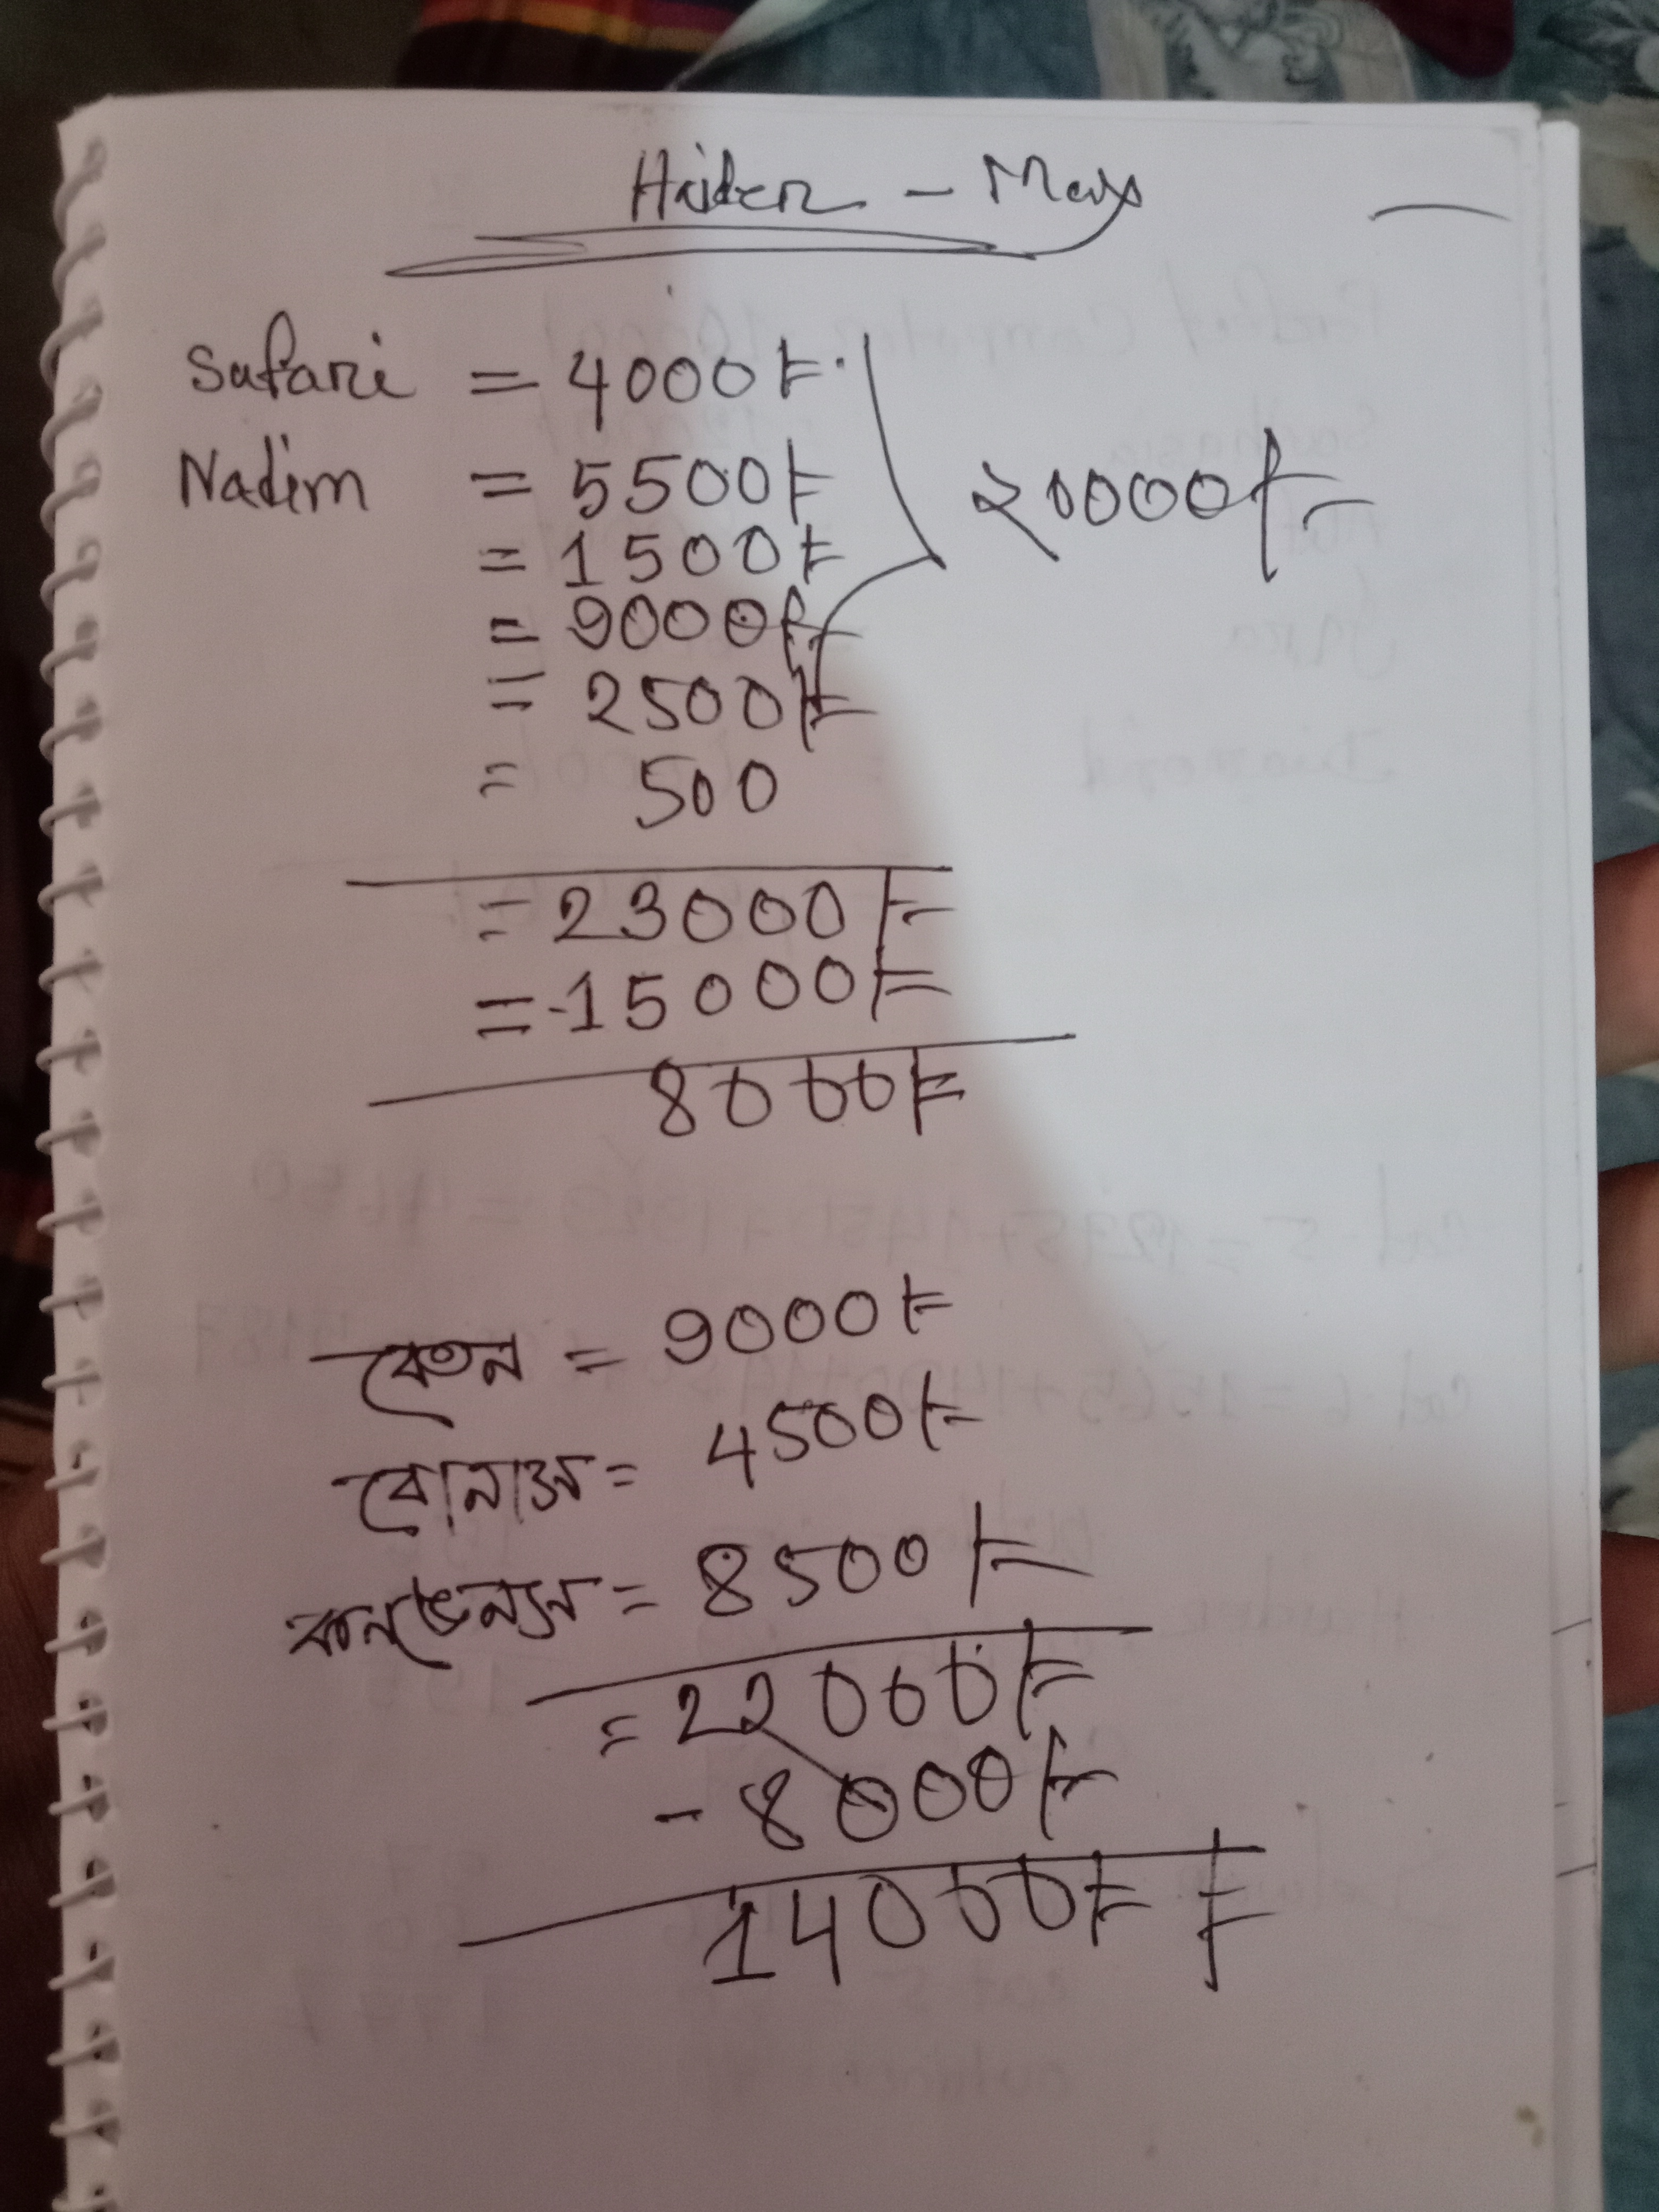 Haider - May
Safari = 4000৳
Nadim = 5500৳
২0000৳
= 1500৳
= 9000৳
= 2500৳
= 500
= 23000৳
= -15000৳
8000৳
বেতন = 9000৳
বোনাস = 4500৳
কনভেনস = 8500৳
= 22000৳
- 8000৳
14000৳ ৳